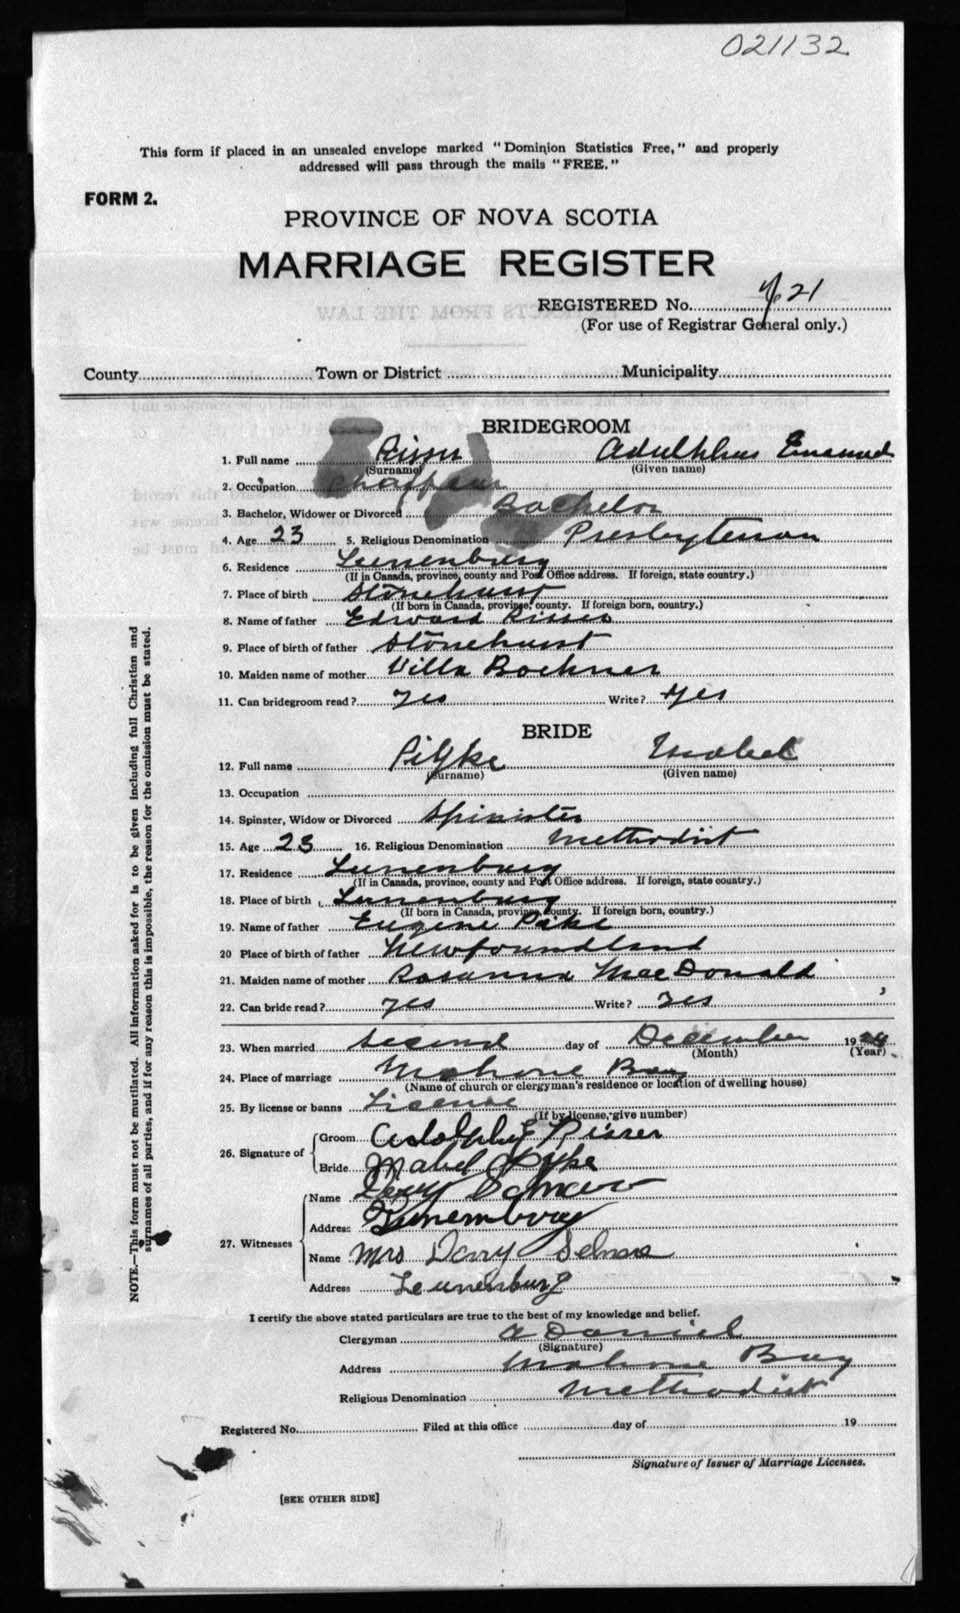 021132
This form if placed in an unsealed envelope marked "Dominion Statistics Free," and properly
addressed will pass through the mails "FREE."
FORM 2.
PROVINCE OF NOVA SCOTIA
MARRIAGE REGISTER
REGISTERED No. 21
(For use of Registrar General only.)
County Town or District Municipality
BRIDEGROOM
1. Full name Risser
(Surname) (Given name)
2. Occupation Chaffeur
3. Bachelor, Widower or Divorced Bachelor
4. Age 23 5. Religious Denomination Presbyterian
6. Residence Lunenburg
(If in Canada, province, county and Post Office address. If foreign, state country.)
7. Place of birth Stonehurst
(If born in Canada, province, county. If foreign born, country.)
8. Name of father Edward Risser
9. Place of birth of father Stonehurst
10. Maiden name of mother Villa Bochner
11. Can bridegroom read? yes Write? yes
BRIDE
12. Full name Mabel
(Surname) (Given name)
13. Occupation
14. Spinster, Widow or Divorced Spinister
15. Age 23 16. Religious Denomination Methodist
17. Residence Lunenburg
(If in Canada, province, county and Post Office address. If foreign, state country.)
18. Place of birth Lunenburg
(If born in Canada, province, county. If foreign born, country.)
19. Name of father Eugene Pike
20 Place of birth of father Newfoundland
21. Maiden name of mother Rosanna MacDonald
22. Can bride read? yes Write? yes
23. When married second day of December 1924
(Month) (Year)
24. Place of marriage Mahone Bay
(Name of church or clergyman's residence or location of dwelling house)
25. By license or banns License
(If by license, give number)
26. Signature of
Groom Adolphy E Risser
Bride Mabel Pyke
27. Witnesses
Name
Address Lunenburg
Name Mrs
Address Lunenburg
I certify the above stated particulars are true to the best of my knowledge and belief.
Clergyman A Daniel
(Signature)
Address Mahone Bay
Religious Denomination Methodist
Registered No. Filed at this office day of 19
Signature of Issuer of Marriage Licenses.
[SEE OTHER SIDE]
NOTE.—This form must not be mutilated. All information asked for is to be given including full Christian and
surnames of all parties, and if for any reason this is impossible, the reason for the omission must be stated.